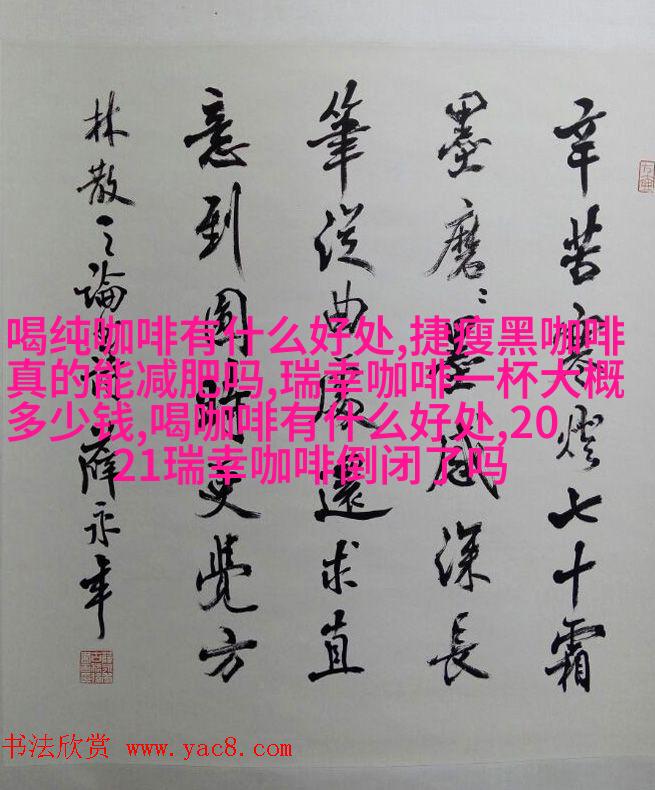 辛苦寒燈七十霜
墨磨〻墨感深長
筆從曲處還求直
意到圓時更覺方
林散之論書詩薛永年
喝纯咖啡有什么好处,捷瘦黑咖啡
真的能减肥吗,瑞幸咖啡一杯大概
多少钱,喝咖啡有什么好处,20
21瑞幸咖啡倒闭了吗
书法欣赏 www.yac8.com